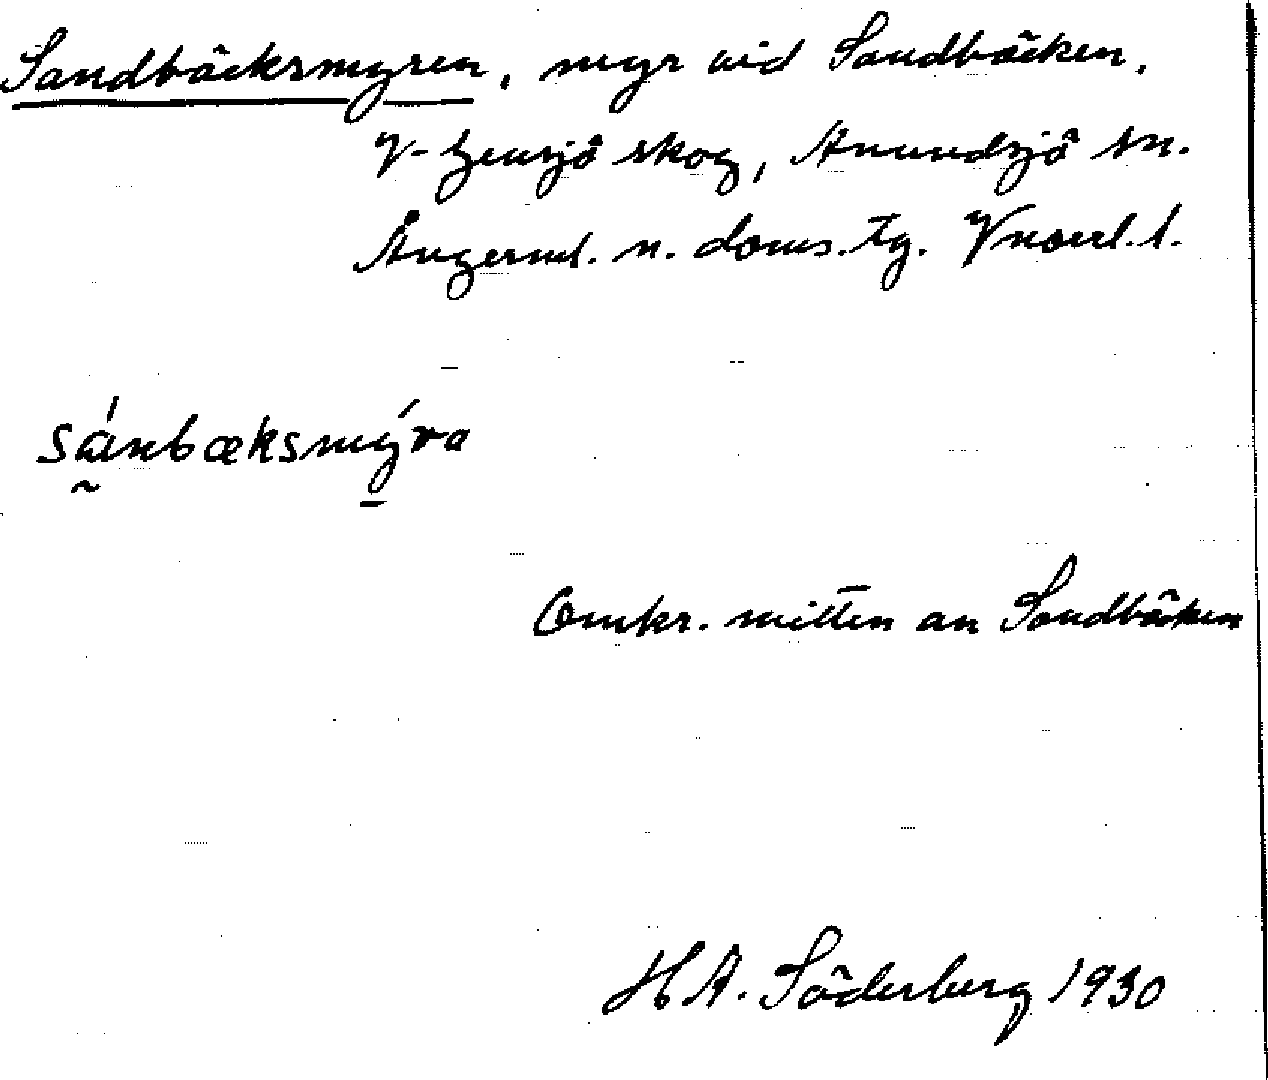 Sandbäcksmyren, myr vid Sandbäcken,
V-Gensjö skog, Anundsjö sn.
Ångerml. n. doms. tg. Vnorrl. l.
sánbæksmýra
Omkr. mitten av Sandbäcken
H A. Söderberg 1930